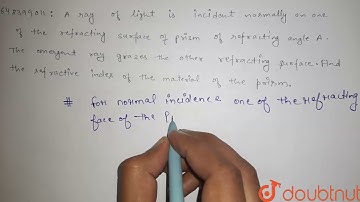 648399011: A ray of light is incident normally on one
of the refracting surface of prism of refracting angle A.
The emergent ray grazes the other refracting surface. Find
the refractive index of the material of the prism.
# for normal incidence one of the refracting
face of the P
doubtnut